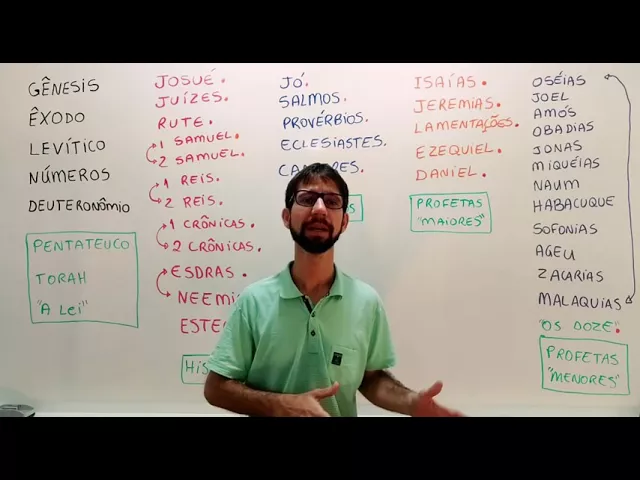 GÊNESIS
ÊXODO
LEVÍTICO
NÚMEROS
DEUTERONÔMIO
PENTATEUCO
TORAH
"A LEI"
JOSUÉ.
JUÍZES.
RUTE.
1 SAMUEL.
2 SAMUEL.
1 REIS.
2 REIS.
1 CRÔNICAS.
2 CRÔNICAS.
ESDRAS.
JÓ.
SALMOS.
PROVÉRBIOS.
ECLESIASTES.
ISAÍAS.
JEREMIAS.
LAMENTAÇÕES.
EZEQUIEL.
DANIEL.
PROFETAS
"MAIORES"
OSÉIAS
JOEL
AMÓS
OBADIAS
JONAS
MIQUÉIAS
NAUM
HABACUQUE
SOFONIAS
AGEU
ZACARIAS
MALAQUIAS
"OS DOZE"
PROFETAS
"MENORES"